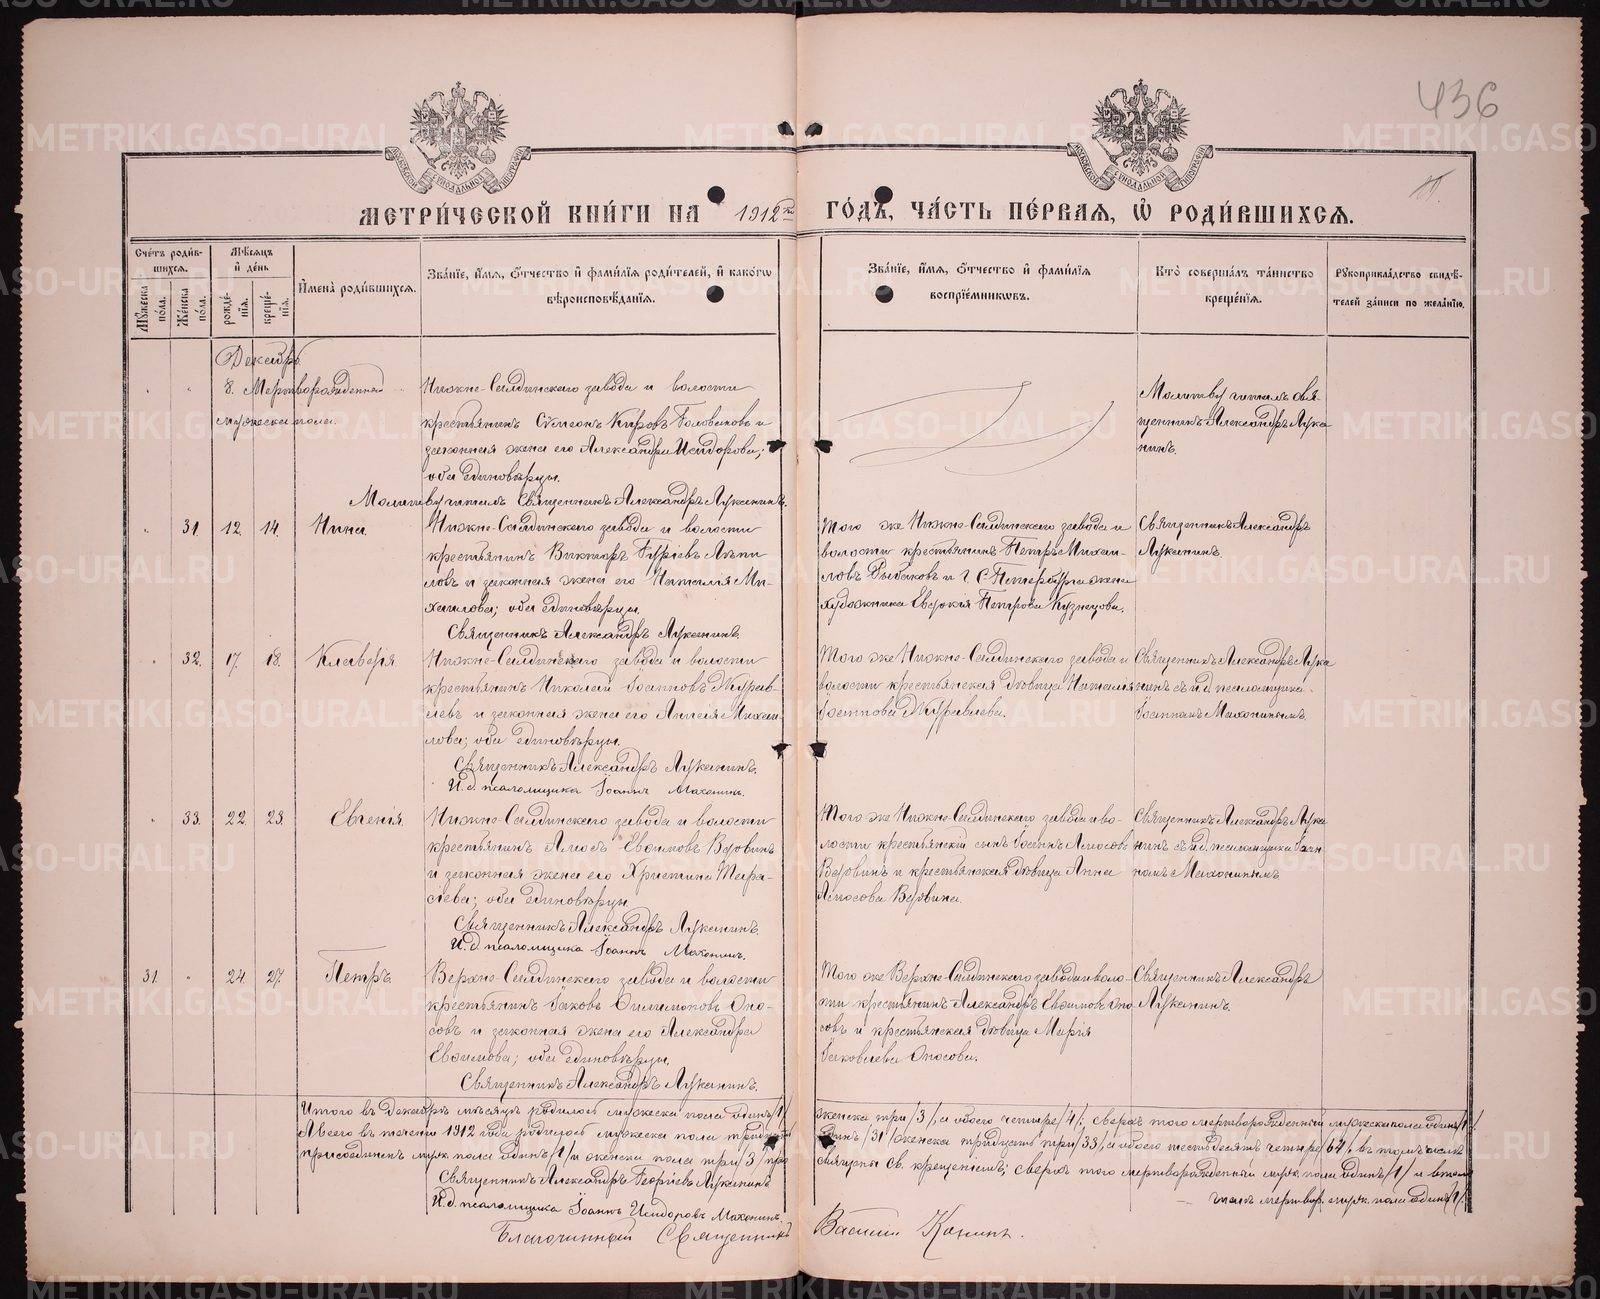 436
МОСКОВСКОЙ СѴНОДАЛЬНОЙ ТИПОГРАФІИ
МОСКОВСКОЙ СѴНОДАЛЬНОЙ ТИПОГРАФІИ
МЕТРИ́ЧЕСКОЙ КНИ́ГИ НА 1912й ГО́ДЪ, ЧА́СТЬ ПЕ́РВАЯ, Ѡ РОДИ́ВШИХСЯ.
Сче́тъ роди́в-
шихся.
Мѣ́сяцъ
и де́нь
Мꙋ́жеска по́ла.
Же́нска по́ла.
рожде́-
нія.
креще́-
нія.
Имена̀ роди́вшихся.
Зва́ніе, и́мя, о́тчество и фами́лія роди́телей, и како́гѡ
вѣроисповѣ́данія.
Зва́ніе, и́мя, о́тчество и фами́лія
воспріе́мниковъ.
Кто̀ соверша́лъ та́инство
креще́нія.
Рꙋкоприкла́дство свидѣ́-
телей за́писи по жела́нію.
Декабрь
" " 8. Мертворожденный
мужеска пола.
Нижне-Салдинскаго завода и волости
крестьянинъ Сѵмеонъ Кировъ Головановъ и
законная жена его Александра Исидорова;
оба единовѣрцы.
Молитву читалъ Священникъ Александръ Луканинъ.
Молитву читалъ свя-
щенникъ Александръ Лука
нинъ.
" 31. 12. 14. Нина.
Нижне-Салдинскаго завода и волости
крестьянинъ Викторъ Гуріевъ Лѣпи
ловъ и законная жена его Наталія Ми-
хаилова; оба единовѣрцы.
Священникъ Александръ Луканинъ.
Того же Нижне-Салдинскаго завода и
волости крестьянинъ Петръ Михаи-
ловъ Рыбаковъ и г. С-Петербурга жена
художника Евдокія Петрова Кузнецова.
Священникъ Александръ
Луканинъ.
" 32. 17. 18. Клавдія
Нижне-Салдинскаго завода и волости
крестьянинъ Николай Іосиповъ Журав-
левъ и законная жена его Анисія Михаи-
лова; оба единовѣрцы.
Священникъ Александръ Луканинъ.
И.д. псаломщика Іоаннъ Маханинъ.
Того же Нижне-Салдинскаго завода и
волости крестьянская дѣвица Наталія
Іосиппова Журавлева.
Священникъ Александръ Лука
нинъ съ и.д. псаломщика
Іоанномъ Маханинымъ.
" 33. 22. 23. Евгенія.
Нижне-Салдинскаго завода и волости
крестьянинъ Амосъ Евѳимовъ Вдовинъ
и законная жена его Христина Тара-
сіева; оба единовѣрцы
Священникъ Александръ Луканинъ.
И.д. псаломщика Іоаннъ Маханинъ.
Того же Нижне-Салдинскаго завода и во-
лости крестьянскій сынъ Іосифъ Амосовъ
Вдовинъ и крестьянская дѣвица Анна
Амосова Вдовина.
Священникъ Александръ Лука
нинъ съ и.д. псаломщика Іоан
номъ Маханинымъ
31. " 24. 27. Петръ.
Верхне-Салдинскаго завода и волости
крестьянинъ Іаковъ Филимоновъ Опо-
совъ и законная жена его Александра
Евѳимова; оба единовѣрцы.
Священникъ Александръ Луканинъ.
Того же Верхне-Салдинскаго завода и воло-
сти крестьянинъ Александръ Евѳимовъ Опо
совъ и крестьянская дѣвица Марія
Іаковлева Опосова.
Священникъ Александръ
Луканинъ.
Итого въ Декабрѣ мѣсяцѣ родилось мужеска пола одинъ /1/
женска три /3/, а обоего четыре /4/; сверхъ того мертворожденный мужеска пола одинъ /1/
А всего въ теченіи 1912 года родилось мужеска пола тридцать
одинъ /31/ женска тридцать три /33/, а обоего шестьдесятъ четыре /64/, въ томъ числѣ
присоединенъ муж. пола одинъ /1/ и женска пола три /3/
св. крещеніемъ; сверхъ того мертворожденный муж. пола одинъ /1/
мертвор. муж. пола одинъ /1/.
Священникъ Александръ Георгіевъ Луканинъ
И.д. псаломщика Іоаннъ Исидоровъ Маханинъ.
Благочинный Священникъ Василій Конинъ.
METRIKI.GASO-URAL.RU